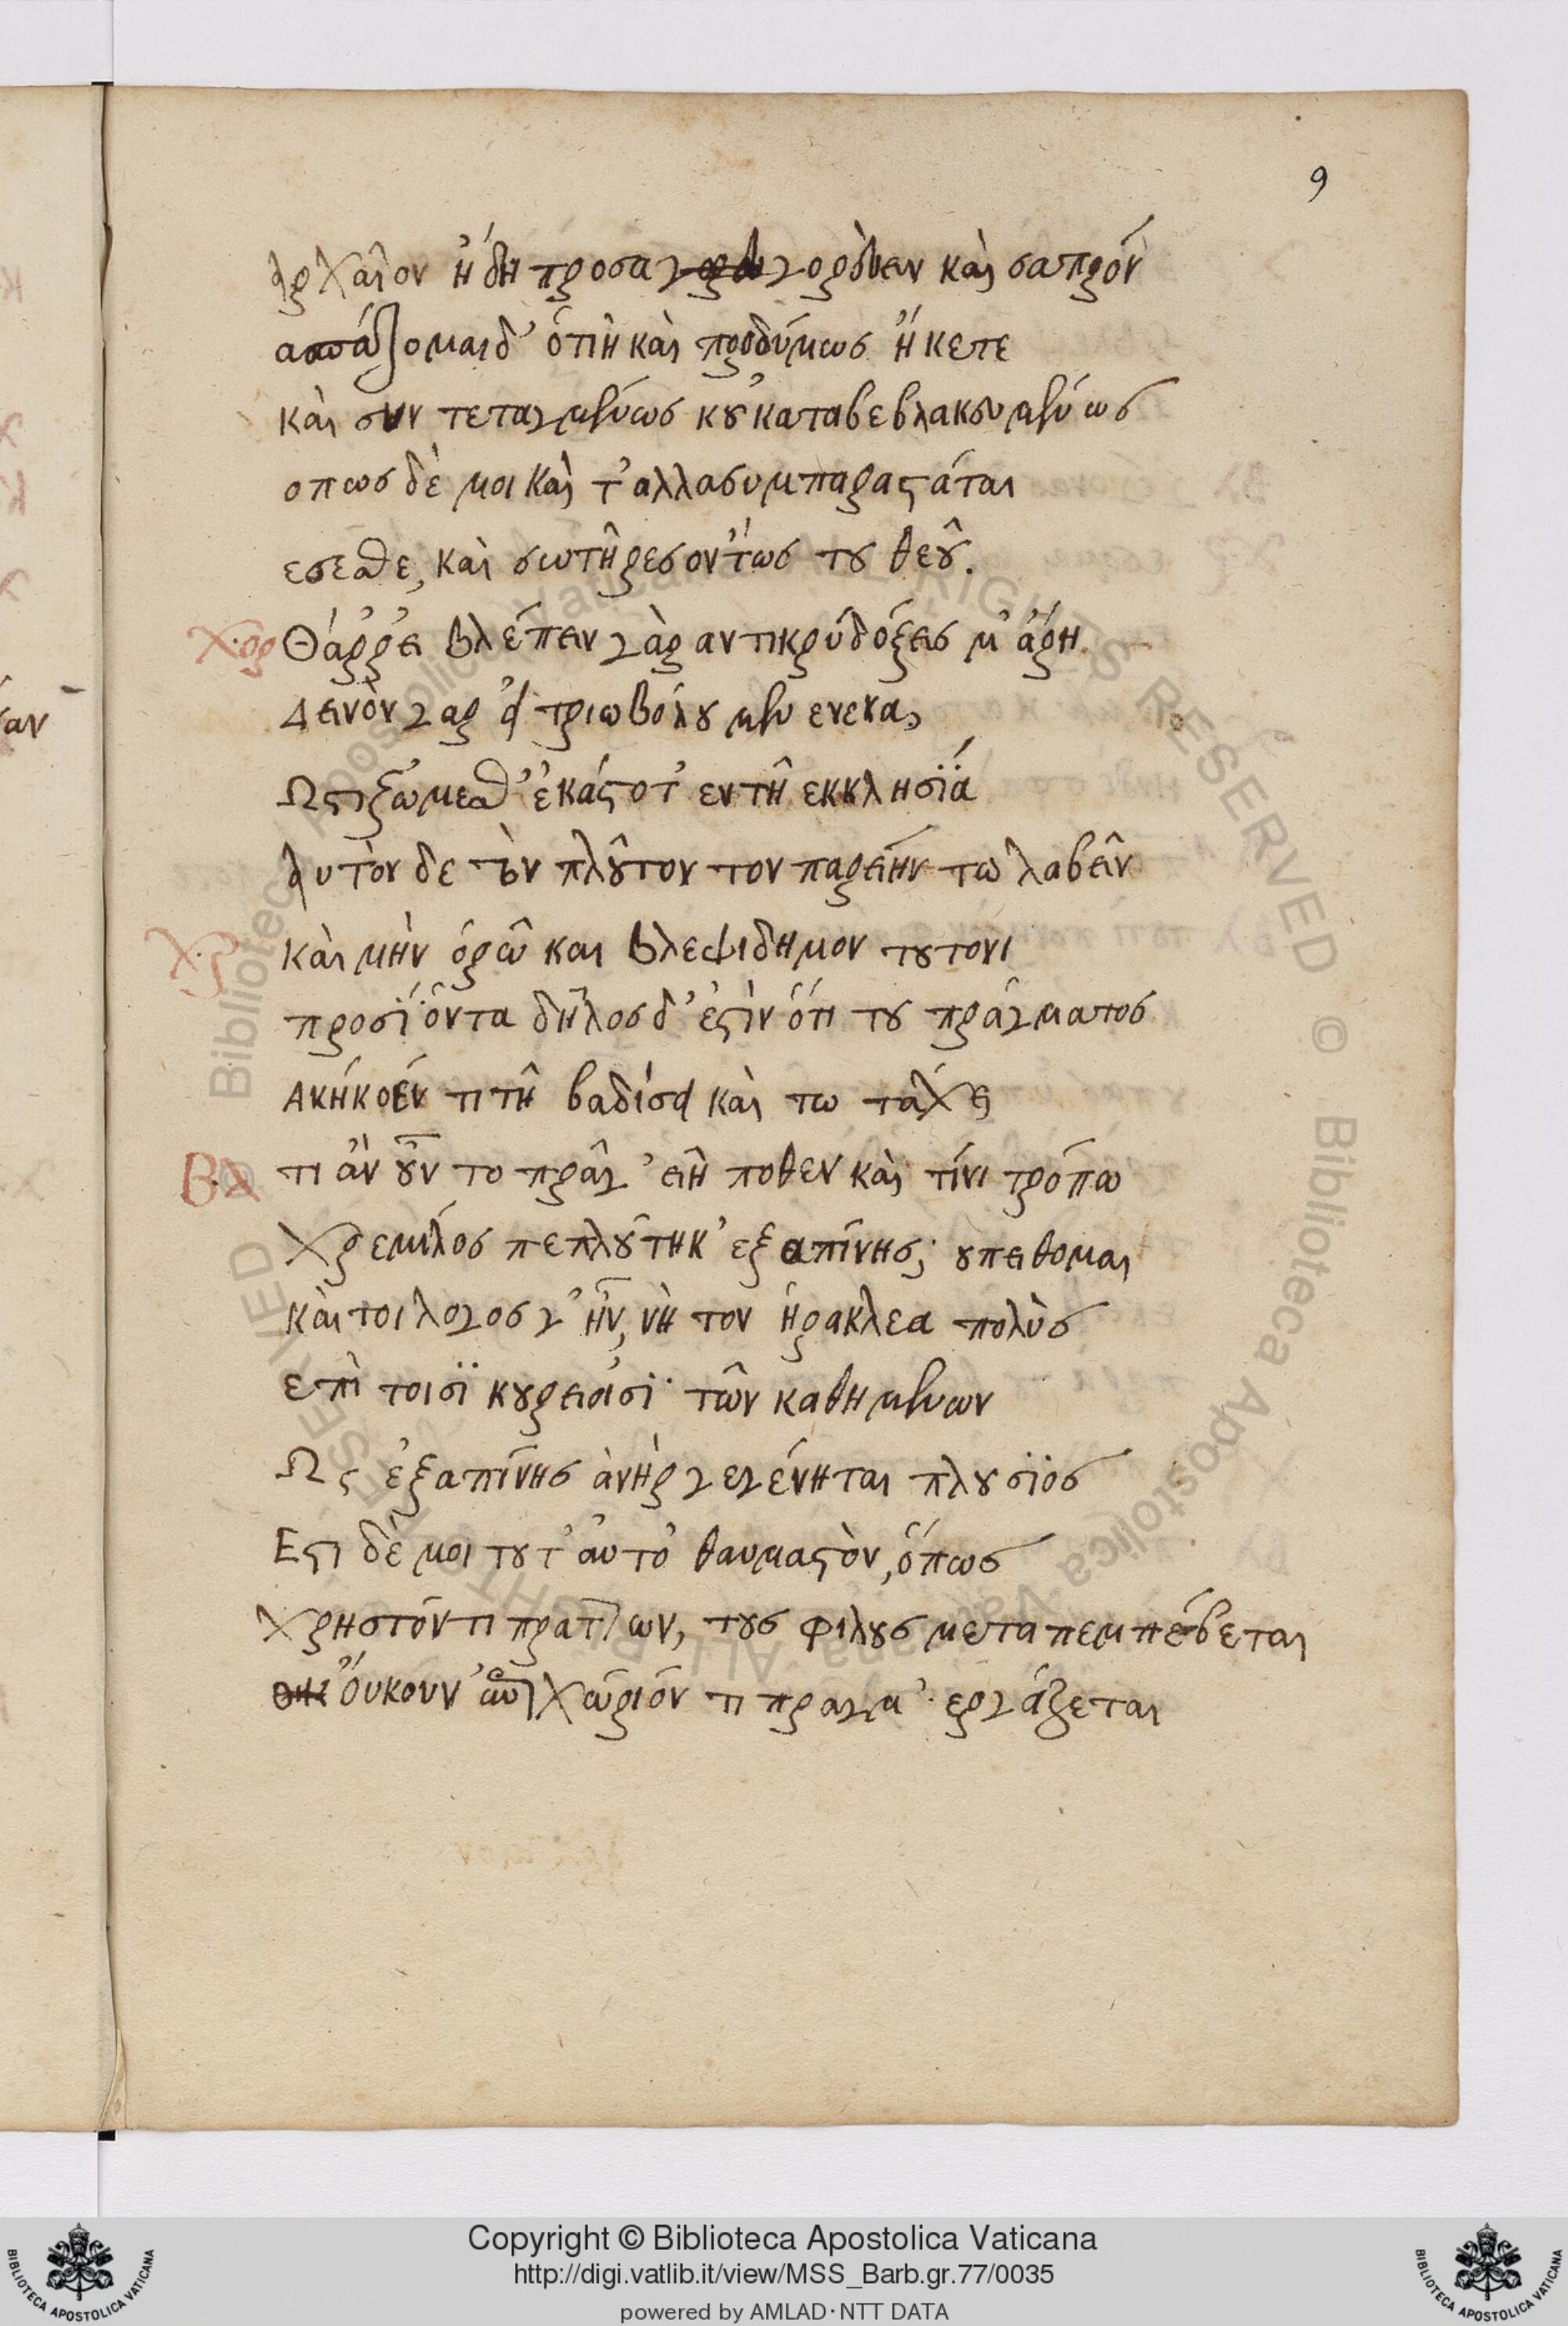 9
Ἀρχαῖον ἤδη προσαγορεύειν καὶ σαπρόν
ασπάζομαι δ' ότιὴ καὶ προθύμως ἥκετε
καὶ συν τεταγμένως κου καταβεβλακευμένως
οπως δὲ μοι καὶ τ' αλλα συμπαραστάται
εσεσθε, καὶ σωτῆρες οντ́ως του θεοῦ.
Χορ Θάρρει βλέπειν γὰρ αντικρύ δόξεις μ' ἄρη.
Δεινὸν γαρ εἰ τριωβόλου μεν ενεκα,
Ωστιζώμεσθ' ἑκάστοτ' εν τῆ εκκλησΐά
Αυτὸν δε τὸν πλοῦτον τον παρείην τω λαβεῖν
Χρ καὶ μὴν ὁρῶ και βλεψιδημον τουτονι
προσϊόντα δῆλος δ' ἐστὶν ὅτι του πράγματος
ακήκοέν τι τῆ βαδίσει καὶ τω τάχει
Βλ τι ἀν οὖν το πρᾶγ' εἴη ποθεν καὶ τίνι τρόπω
Χρεμύλος πεπλούτηκ' εξαπίνης; ου πειθομαι
καὶ τοι λογος γ' ἦν, νὴ τον ἡρακλεα πολὺς
επὶ τοισϊ κουρειοισϊ τῶν καθημενων
Ως ἐξαπίνης ἁνὴρ γεγένηται πλουσϊος
Εστι δέ μοι τουτ' αὐτὸ θαυμαστὸν, ὅπως
Χρηστόν τι πραττων, τους φιλους μεταπεμπέβεται
Ὀυκουν χώριόν τι πραγμ' εργάζεται
Copyright © Biblioteca Apostolica Vaticana
http://digi.vatlib.it/view/MSS_Barb.gr.77/0035
powered by AMLAD·NTT DATA